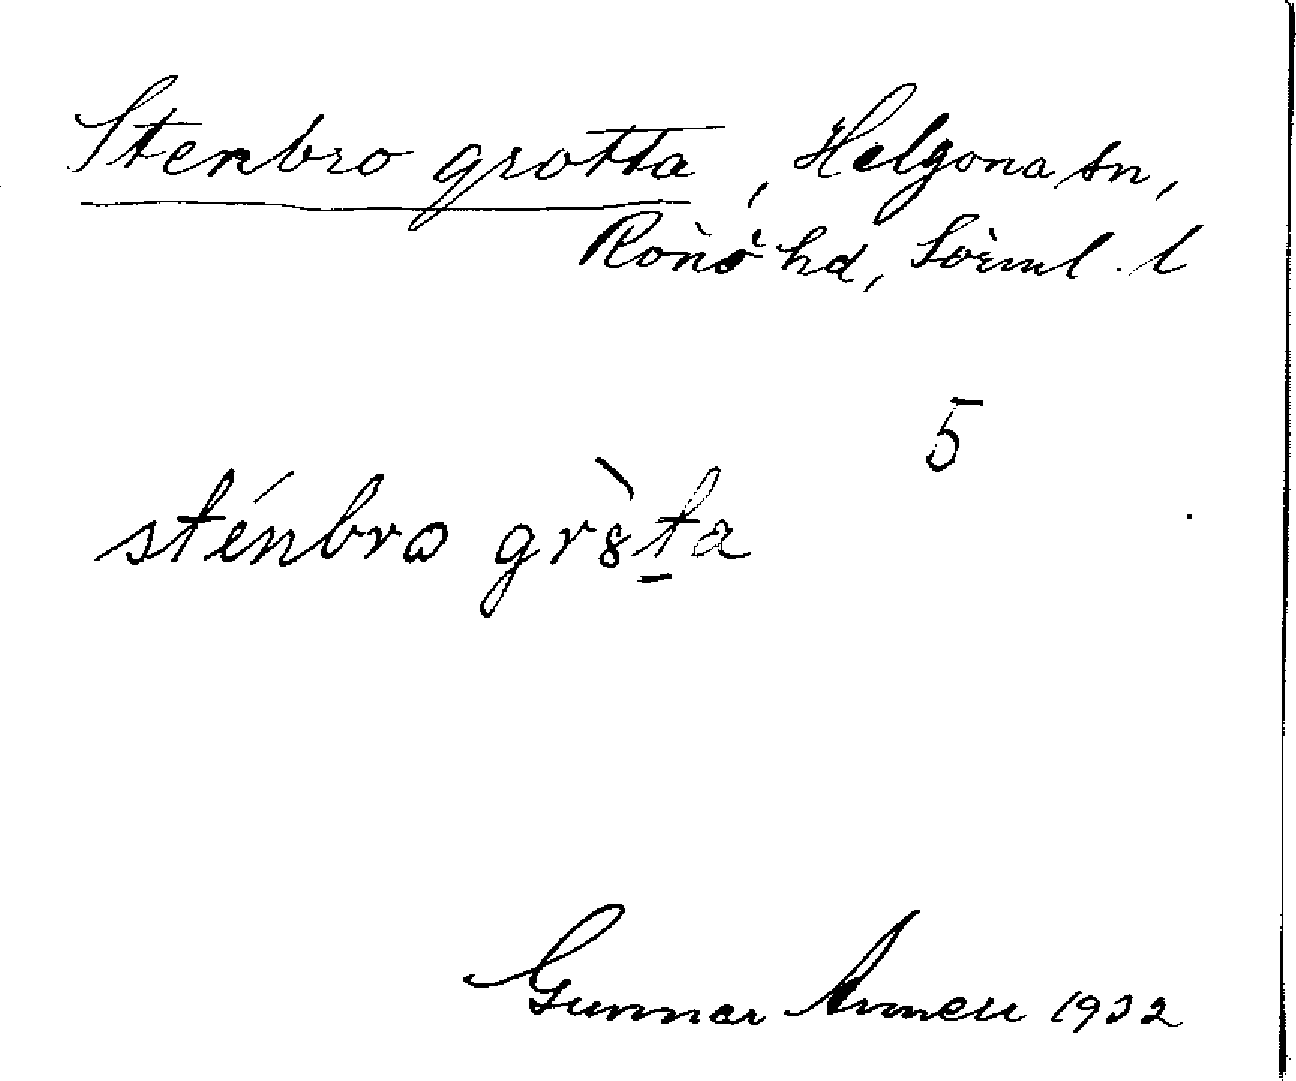 Stenbro grotta, Helgona sn,
Rönö hd, Sörml. l
5
sténbrω gr8̀ṯa
Gunnar 1932